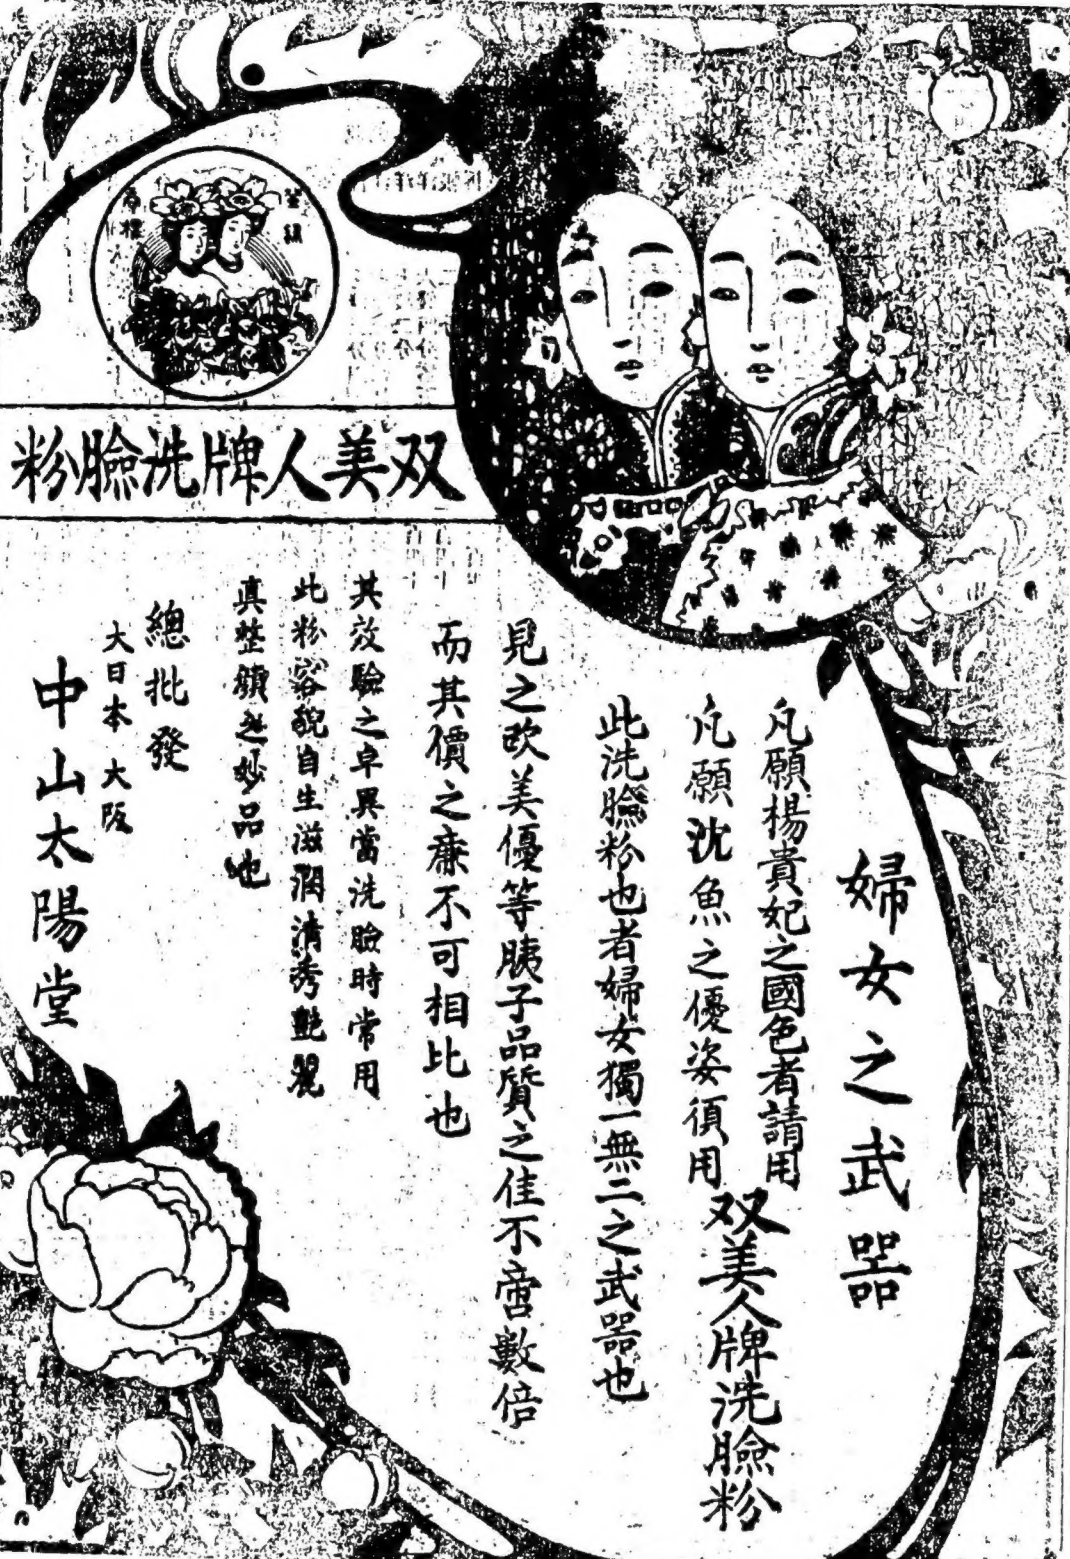 双美人牌洗臉粉
婦女之武器
凡願楊貴妃之國色者請用
凡願沈魚之優姿須用
双美人牌洗臉粉
此洗臉粉也者婦女獨一無二之武器也
見之欧美優等胰子品質之佳不啻數倍
而其價之廉不可相比也
其效驗之卓異當洗臉時常用
此粉容貌自生滋潤清秀艷麗
真整顔之妙品也
總批發
大日本大阪
中山太陽堂